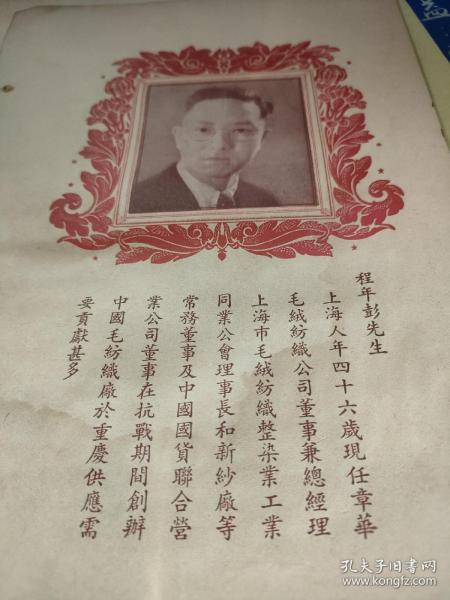 程年彭先生
上海人年四十六歲現任章華
毛絨紡織公司董事兼總經理
上海市毛絨紡織整染業工業
同業公會理事長和新紗廠等
常務董事及中國國貨聯合營
業公司董事在抗戰期間創辦
中國毛紡織廠於重慶供應需
要貢獻甚多
孔夫子旧书网
www.kongfz.com